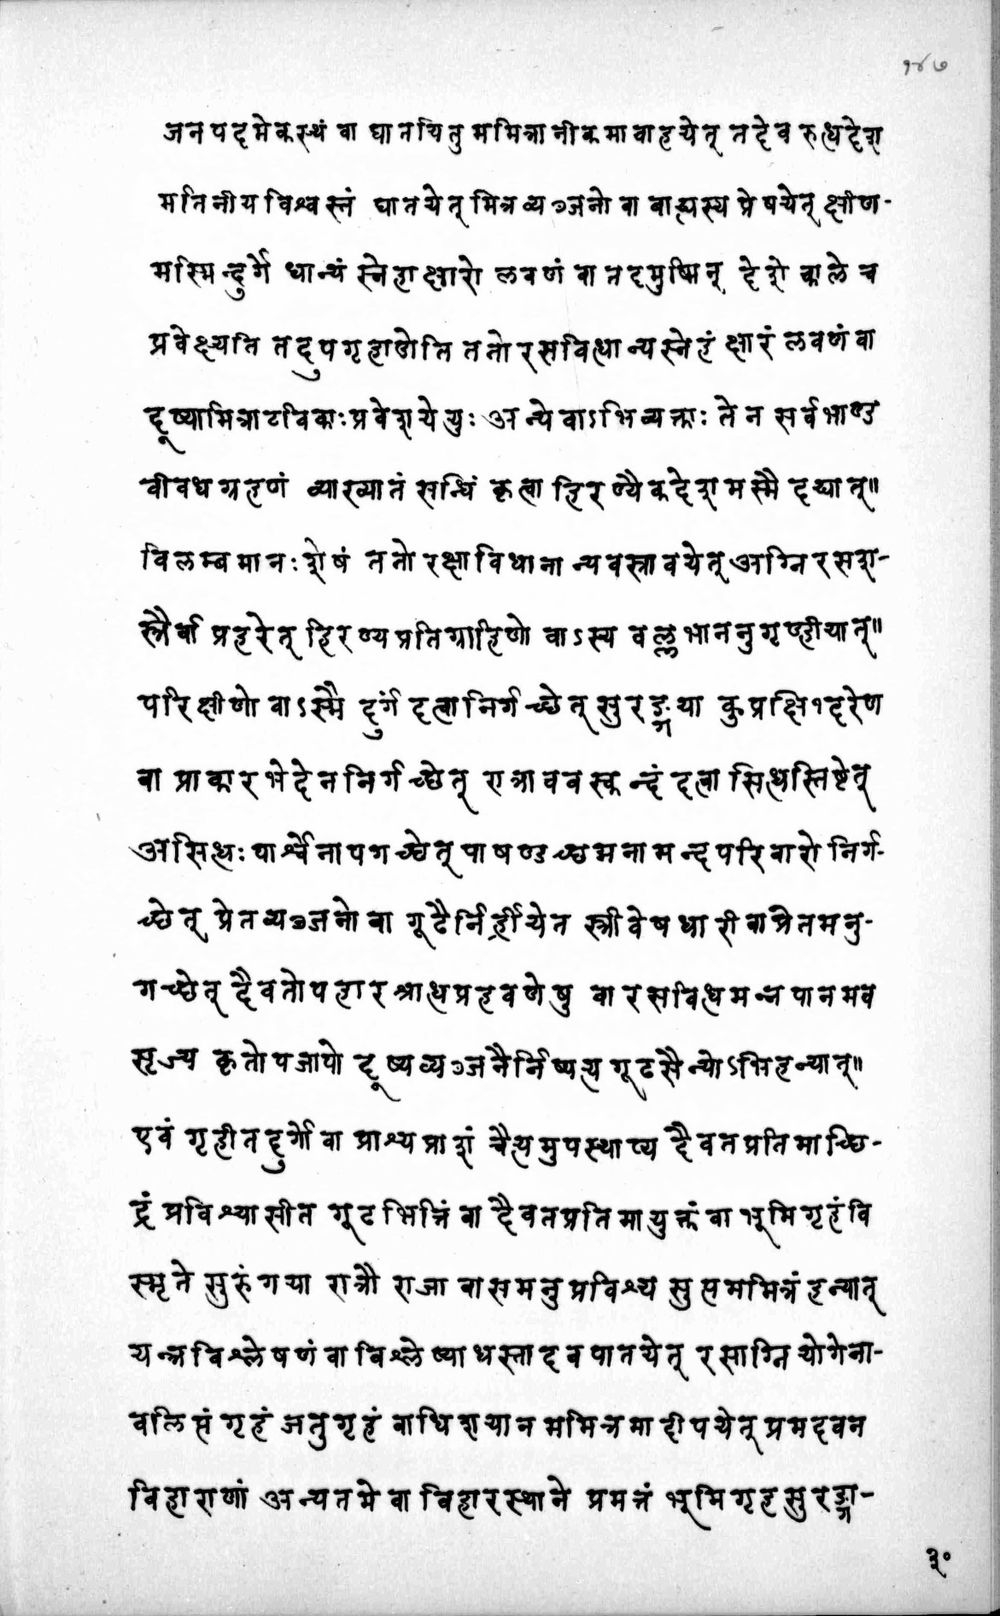 १४७
जनपदमेकस्थं वा घातयितुममित्रानीकमावाहयेत् तदेव रुत्धदेश
मतिनीय विश्वस्तं घातयेत् मित्रव्यञ्जनो वा बाह्यस्य प्रेषयेत् क्षीण-
मस्मिन्दुर्गे धान्यं स्नेहाक्षारो लवणं वा तदमुष्मिन् देशे काले च
प्रवेक्ष्यति तदुपगृहाणेति ततो रसवित्धान्यस्नेहं क्षारं लवणं वा
दूष्यामित्राटविकाः प्रवेशयेयुः अन्ये वाऽभिव्यक्ताः तेन सर्वभाण्ड
वीवधग्रहणं व्याख्यातं सन्धिं कृत्वा हिरण्यैकदेशमस्मै दद्यात्॥
विलम्बमानः शेषं ततो रक्षाविधानान्यवस्रावयेत् अग्निरसश-
स्त्रैर्वा प्रहरेत् हिरण्यप्रतिग्राहिणो वाऽस्य वल्लभाननुगृण्हीयात्॥
परिक्षीणो वाऽस्मै दुर्गं दत्वा निर्गच्छेत् सुरङ्गया कुप्रक्षिप्दरेण
वा प्राकारभेदेन निर्गच्छेत् रात्राववस्कन्दं दत्वा सित्धस्तिष्टेत्
असित्धः पार्श्वेनापगच्छेत् पाषण्डच्छद्मनामन्दपरिवारो निर्ग-
च्छेत् प्रेतव्यञ्जनो वा गूढैर्निर्ह्रीयेत स्त्रीवेषधारी वा प्रेतमनु-
गच्छेत् दैवतोपहारश्रात्धप्रहवणेषु वा रसवित्धमन्नपानमव
सृज्य कृतोपजापो दूष्यव्यञ्जनैर्निष्पत्य गूढसैन्योऽभिहन्यात्॥
एवं गृहीतदुर्गो वा प्राश्यप्राशं चैत्यमुपस्थाप्य दैवतप्रतिमाच्छि-
द्रं प्रविश्यासीत गूढभित्तिं वा दैवतप्रतिमायुक्तं वा भूमिगृहं वि
स्मृते सुरुंगया रात्रौ राजावासमनुप्रविश्य सुप्तममित्रं हन्यात्
यन्त्रविश्लेषणं वा विश्लेष्याधस्तादवपातयेत् रसाग्नियोगेना-
वलिप्तं गृहं जतुगृहं वाधिशयानममित्रमादीपयेत् प्रमदवन
विहाराणां अन्यतमे वा विहारस्थाने प्रमत्तं भूमिगृहसुरङ्गा-
३०